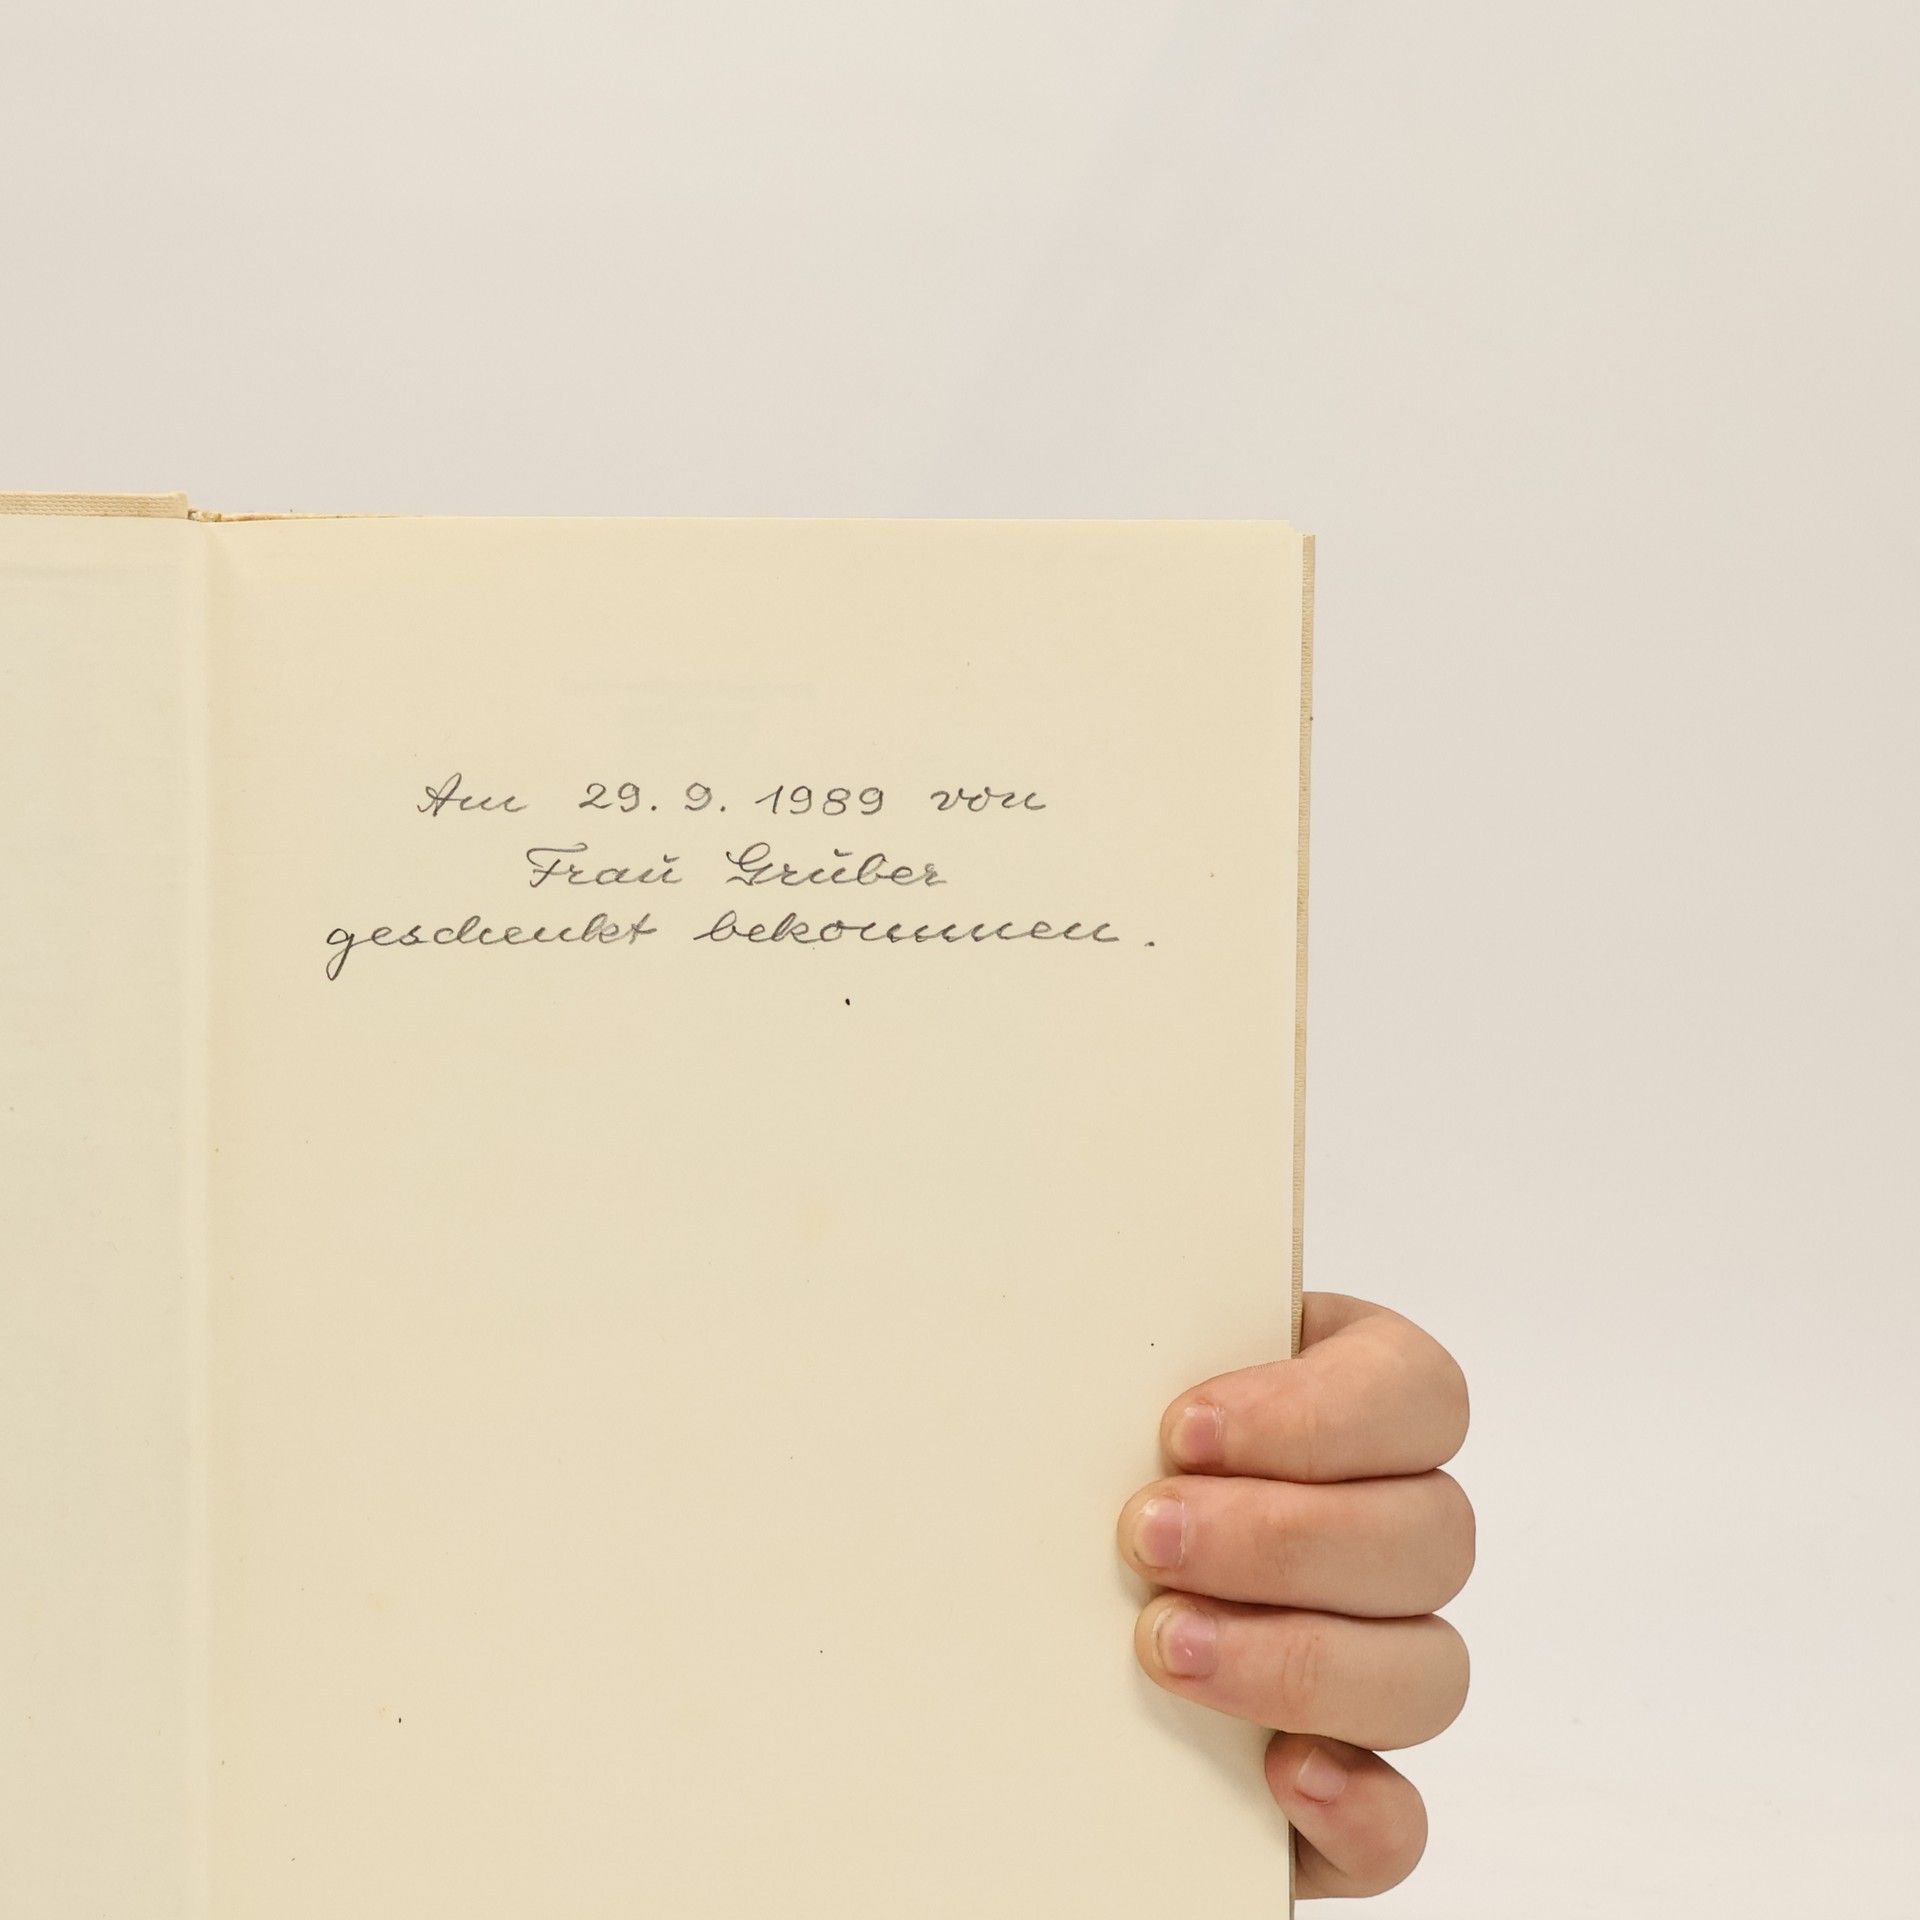 Am 29. 9. 1989 von
Frau Gruber
geschenkt bekommen.